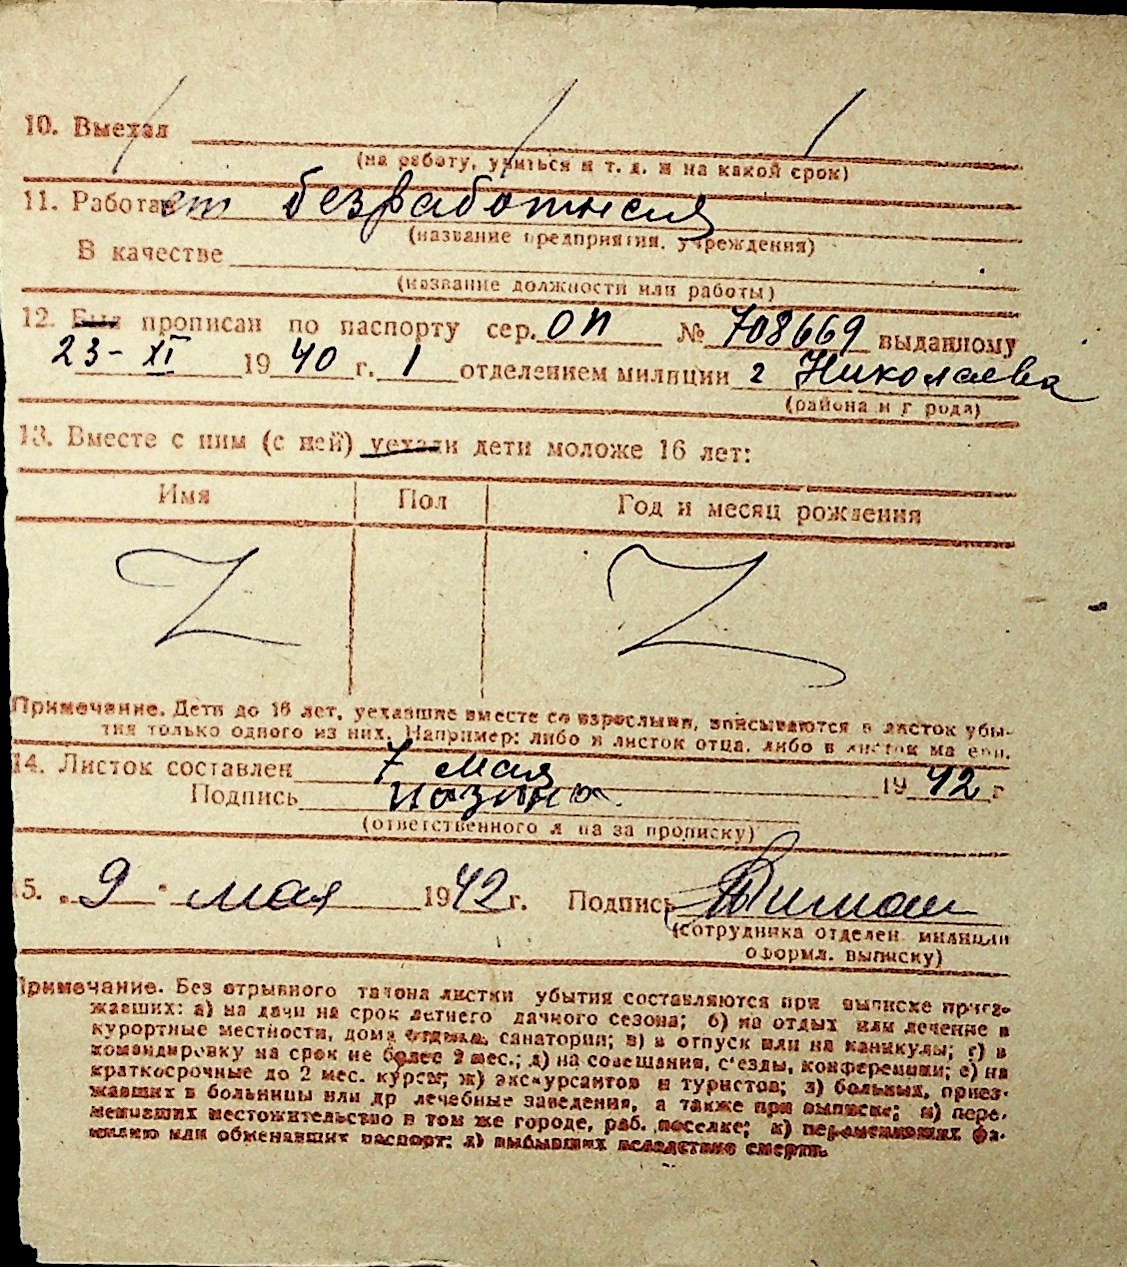 10. Выехал
(на работу, учиться и т. д. и на какой срок)
11. Работает безработная
(название предприятия, учреждения)
В качестве
(название должности или работы)
12. Был прописан по паспорту сер. ОП № 708669 выданному
23 - XI 1940 г. 1 отделением милиции г Николаева
(района и города)
13. Вместе с ним (с ней) уехали дети моложе 16 лет:
Имя Пол Год и месяц рождения
Z Z
Примечание. Дети до 16 лет, уехавшие вместе со взрослыми, вписываются в листок убы-
тия только одного из них. Например: либо в листок отца, либо в листок матери.
14. Листок составлен 7 мая 1942 г
Подпись
(ответственного лица за прописку)
15. „9" мая 1942 г. Подпись
(сотрудника отделен. милиции
оформл. выписку)
Примечание. Без отрывного талона листки убытия составляются при выписке приез-
жавших: а) на дачи на срок летнего дачного сезона; б) на отдых или лечение в
курортные местности, дома отдыха, санатории; в) в отпуск или на каникулы; г) в
командировку на срок не более 2 мес.; д) на совещания, с'езды, конференции; е) на
краткосрочные до 2 мес. курсы; ж) экскурсантов и туристов; з) больных, приез-
жавших в больницы или др лечебные заведения, а также при выписке; и) пере-
менивших местожительство в том же городе, раб. поселке; к) переменивших фа-
милию или обменявших паспорт; л) выбывших вследствие смерти.